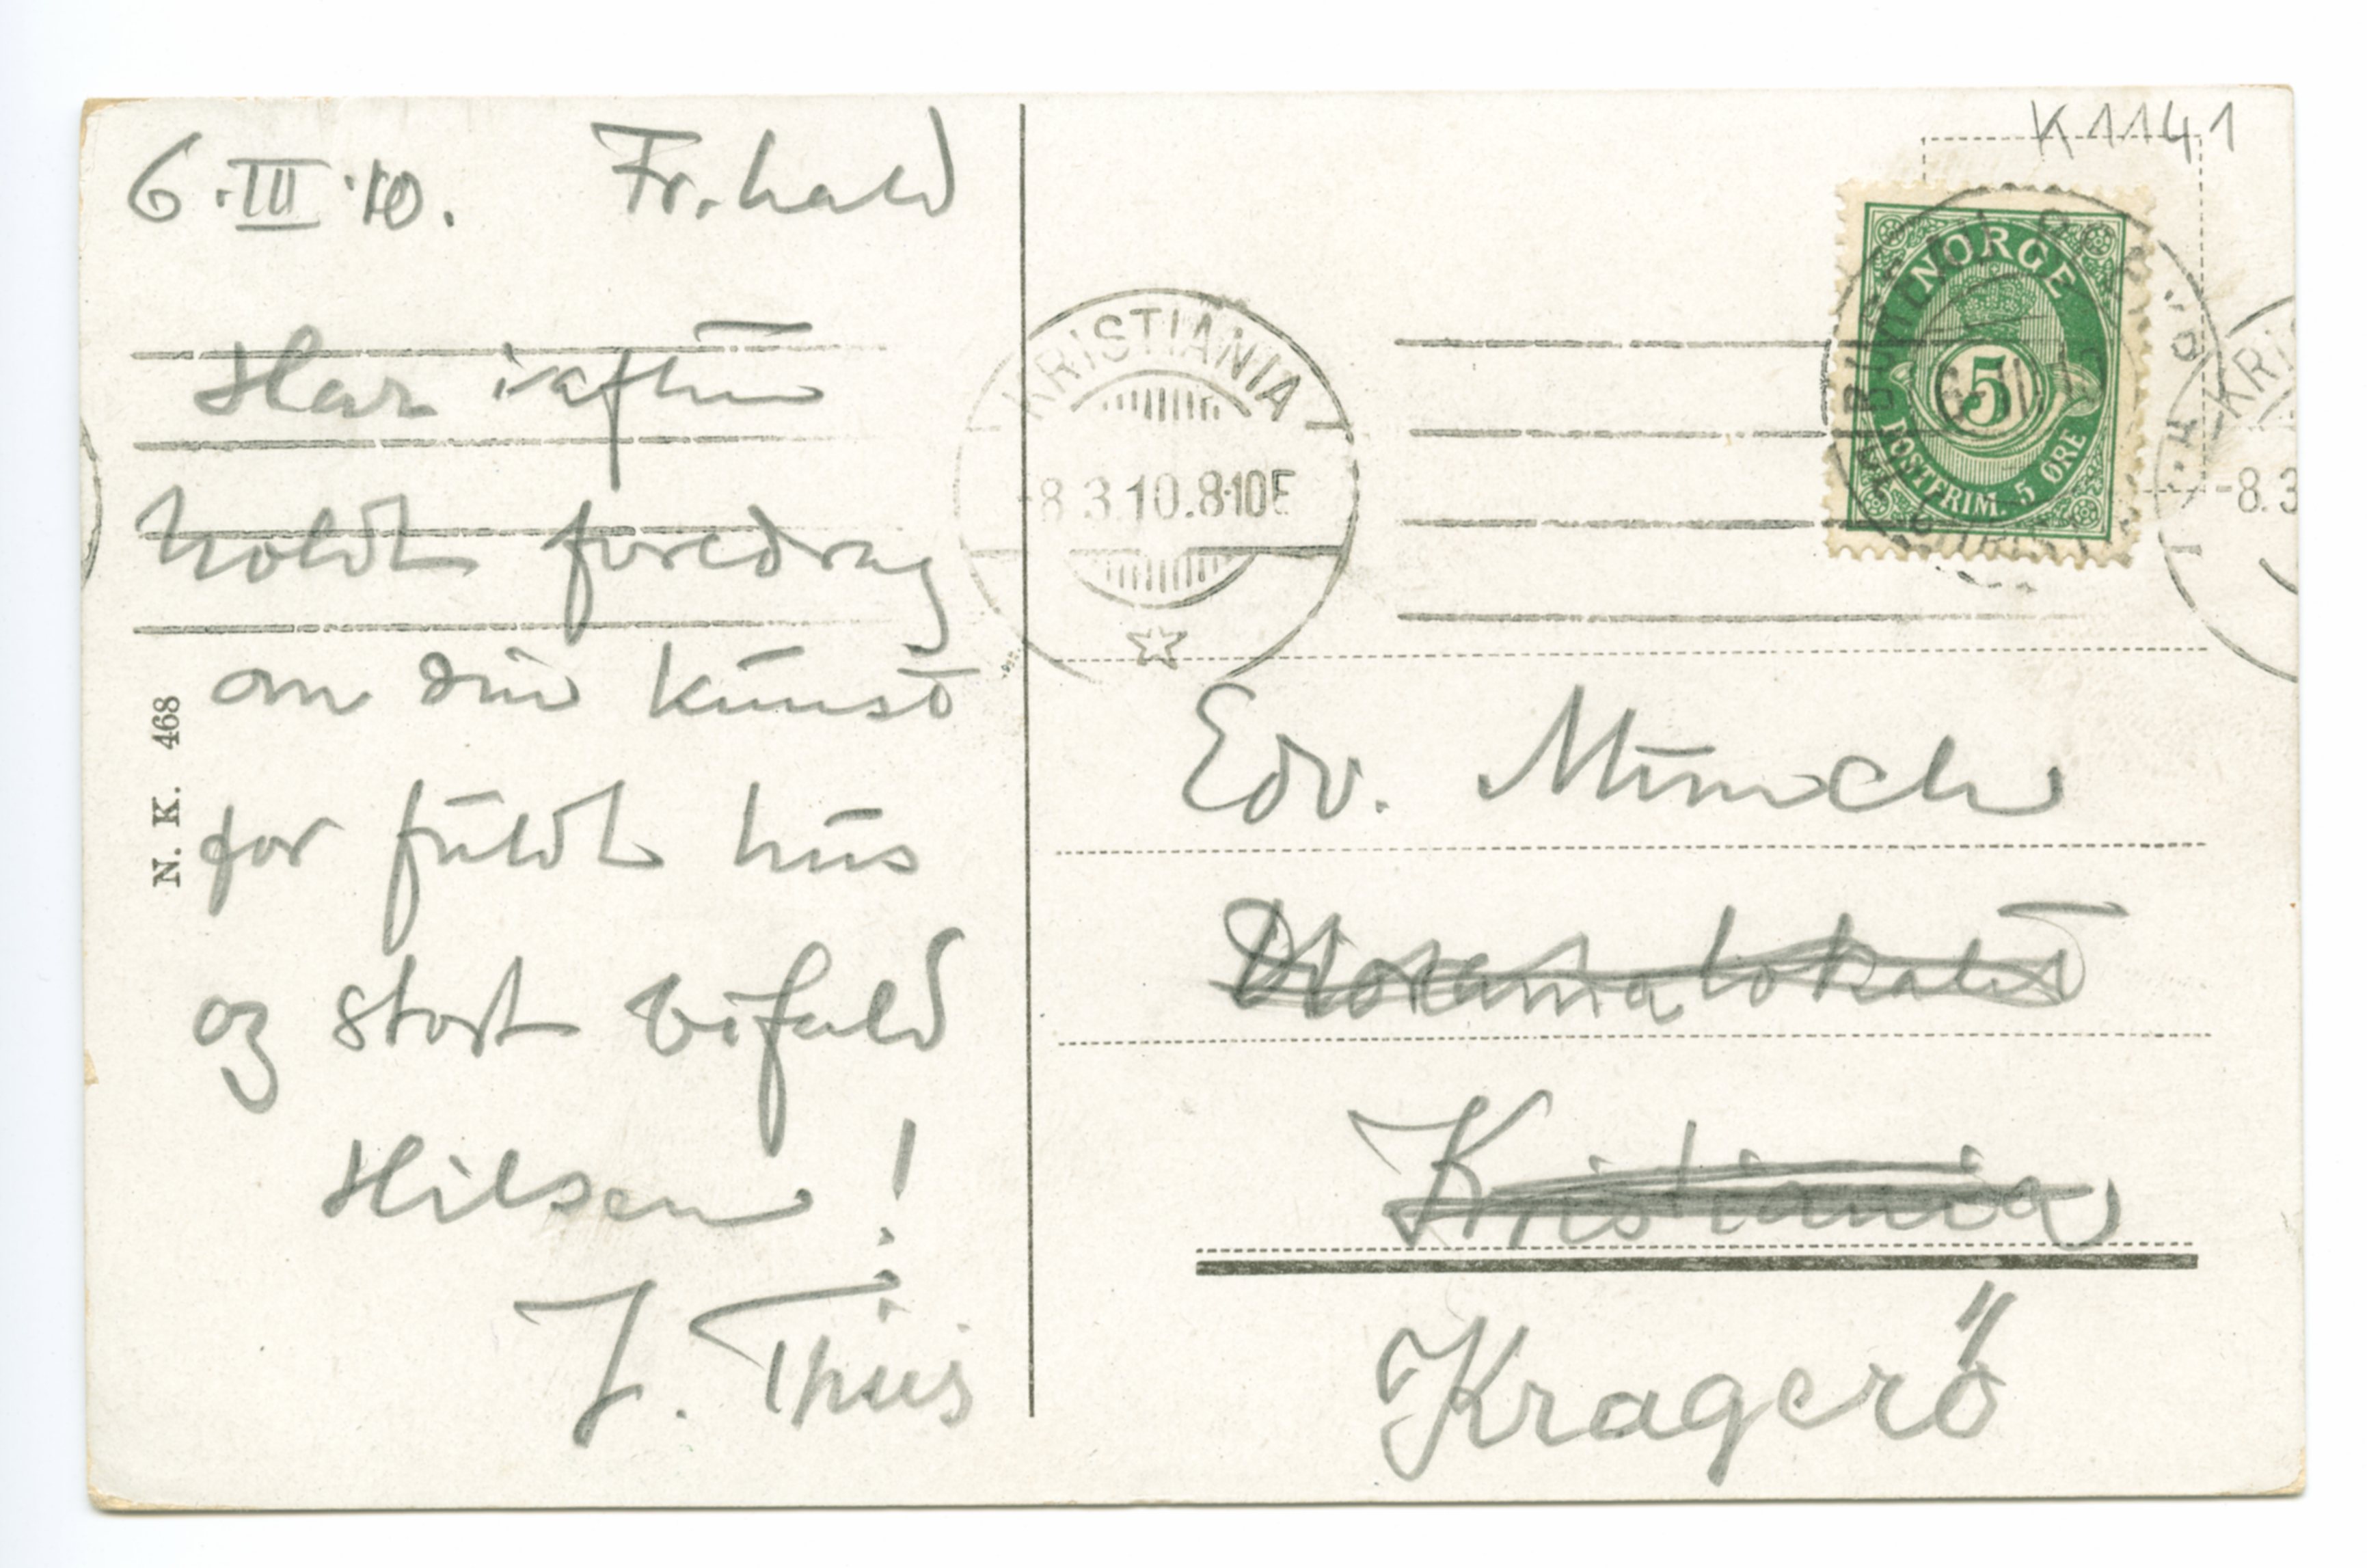 6.III.10. Fr.hald
Har iaften
holdt foredrag
om din kunst
for fuldt hus
og stort bifald
Hilsen!
J. Thiis
N. K. 468
K 1141
KRISTIANIA
8.3.10.8-10E
NORGE
5
POSTFRIM. 5 ØRE
KRIS
-8.3
Edv. Munch
Dioramalokalet
Kristiania
Kragerö